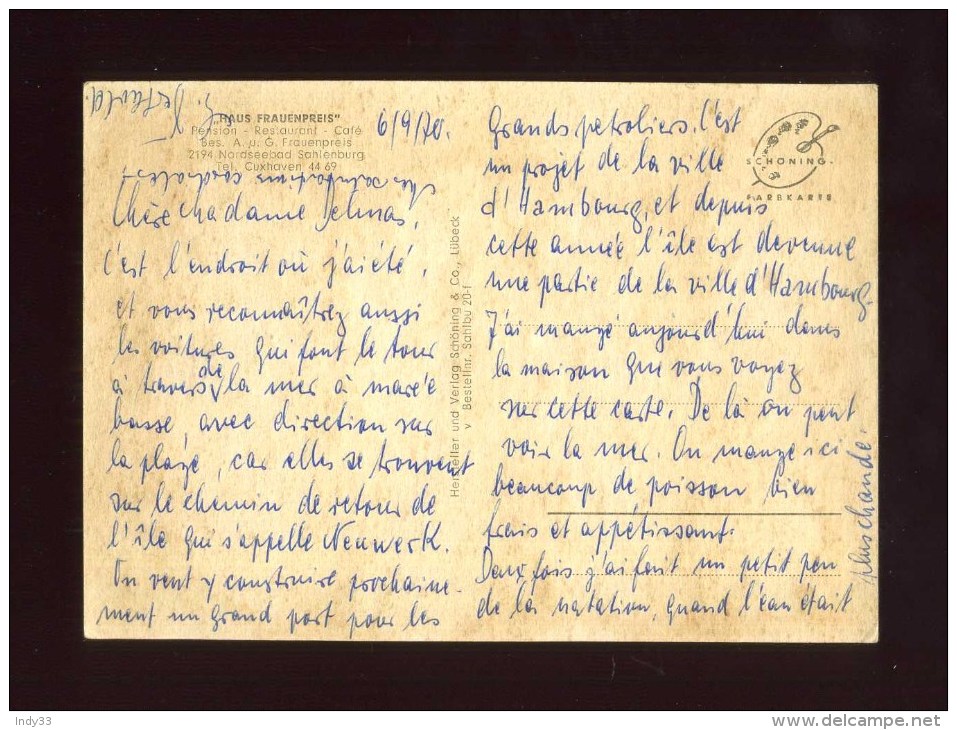 "HAUS FRAUENPREIS"
Pension - Restaurant - Café
Bes. A. u. G. Frauenpreis
2194 Nordseebad Sahlenburg
Tel. Cuxhaven 44 69
6/9/70.
Chère Madame Delmas,
c'est l'endroit où j'ai été,
et vous reconnaîtrez aussi
les voitures qui font le tour
à travers de la mer à marée
basse, avec direction sur
la plage, car elles se trouvent
sur le chemin de retour de
l'île qui s'appelle Neuwerk.
On veut y construire prochaine-
ment un grand port pour les
Grands petroliers. C'est
un projet de la ville
d'Hambourg, et depuis
cette année l'île est devenue
une partie de la ville d'Hambourg.
J'ai mangé aujourd'hui dans
la maison que vous voyez
sur cette carte. De là on peut
voir la mer. On mange ici
beaucoup de poisson bien
frais et appétissant.
Deux fois j'ai fait un petit peu
de la natation, quand l'eau était
plus chaude.
salutations cordiales
Hersteller und Verlag Schöning & Co., Lübeck
Bestellnr. Sahlbu 20-f
SCHÖNING-
FARBKARTE
Indy33
www.delcampe.net